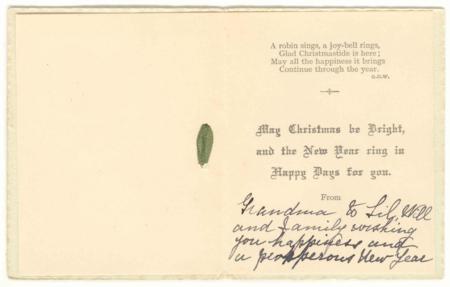 A robin sings, a joy-bell rings,
Glad Christmastide is here;
May all the happiness it brings
Continue through the year.
C.D.W.
May Christmas be Bright,
and the New Year ring in
Happy Days for you.
From
Grandma & Lil, Will
and family wishing
you happiness and
a prosperous New Year